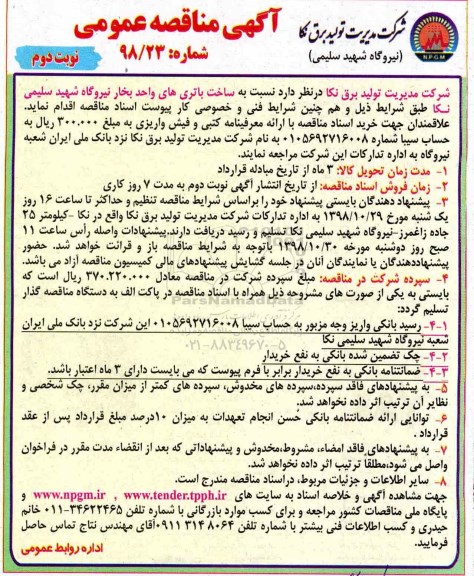 شرکت مدیریت تولید برق نکا
(نیروگاه شهید سلیمی)
NPGM
آگهی مناقصه عمومی
شماره: ۹۸/۲۳
نوبت دوم
شرکت مدیریت تولید برق نکا درنظر دارد نسبت به ساخت باتری های واحد بخار نیروگاه شهید سلیمی
نکا طبق شرایط ذیل و هم چنین شرایط فنی و خصوصی کار پیوست اسناد مناقصه اقدام نماید.
علاقمندان جهت خرید اسناد مناقصه با ارائه معرفینامه کتبی و فیش واریزی به مبلغ ۳۰۰.۰۰۰ ریال به
حساب سیبا شماره ۰۱۰۵۶۹۲۷۱۶۰۰۸ به نام شرکت مدیریت تولید برق نکا نزد بانک ملی ایران شعبه
نیروگاه به اداره تدارکات این شرکت مراجعه نمایند.
۱- مدت زمان تحویل کالا: ۳ ماه از تاریخ مبادله قرارداد
۲- زمان فروش اسناد مناقصه: از تاریخ انتشار آگهی نوبت دوم به مدت ۷ روز کاری
۳- پیشنهاد دهندگان بایستی پیشنهاد خود را براساس شرایط مناقصه تنظیم و حداکثر تا ساعت ۱۶ روز
یک شنبه مورخ ۱۳۹۸/۱۰/۲۹ به اداره تدارکات شرکت مدیریت تولید برق نکا واقع در نکا -کیلومتر ۲۵
جاده زاغمرز-نیروگاه شهید سلیمی نکا تسلیم و رسید دریافت دارند.پیشنهادات واصله رأس ساعت ۱۱
صبح روز دوشنبه مورخه ۱۳۹۸/۱۰/۳۰ باتوجه به شرایط مناقصه باز و قرائت خواهد شد. حضور
پیشنهاددهندگان یا نمایندگان آنان در جلسه گشایش پیشنهادهای مالی کمیسیون مناقصه آزاد می باشد.
۴- سپرده شرکت در مناقصه: مبلغ سپرده شرکت در مناقصه معادل ۳۷۰.۲۲۰.۰۰۰ ریال است که
بایستی به یکی از صورت های مشروحه ذیل همراه با اسناد مناقصه در پاکت الف به دستگاه مناقصه گذار
تسلیم گردد:
۴-۱- رسید بانکی واریز وجه مزبور به حساب سیبا ۰۱۰۵۶۹۲۷۱۶۰۰۸ این شرکت نزد بانک ملی ایران
شعبه نیروگاه شهید سلیمی نکا
۴-۲- چک تضمین شده بانکی به نفع خریدار
۴-۳- ضمانتنامه بانکی به نفع خریدار برابر با فرم پیوست که می بایست دارای ۳ ماه اعتبار باشد.
۵- به پیشنهادهای فاقد سپرده،سپرده های مخدوش، سپرده های کمتر از میزان مقرر، چک شخصی و
نظایر آن ترتیب اثر داده نخواهد شد.
۶- توانایی ارائه ضمانتنامه بانکی حُسن انجام تعهدات به میزان ۱۰درصد مبلغ قرارداد پس از عقد
قرارداد .
۷- به پیشنهادهای فاقد امضاء، مشروط،مخدوش و پیشنهاداتی که بعد از انقضاء مدت مقرر در فراخوان
واصل می شود،مطلقا ترتیب اثر داده نخواهد شد.
۸- سایر اطلاعات و جزئیات مربوط، دراسناد مناقصه مندرج است.
جهت مشاهده آگهی و خلاصه اسناد به سایت های www.npgm.ir , www.tender.tpph.ir و
پایگاه ملی مناقصات کشور مراجعه و برای کسب موارد بازرگانی با شماره تلفن ۳۴۶۲۲۴۶۵-۰۱۱ خانم
حیدری و کسب اطلاعات فنی بیشتر با شماره تلفن ۰۹۱۱۳۱۴۸۰۶۴آقای مهندس نتاج تماس حاصل
فرمایید.
اداره روابط عمومی
ParsNamadData
۰۲۱-۸۸۳۴۹۶۷۰-۵